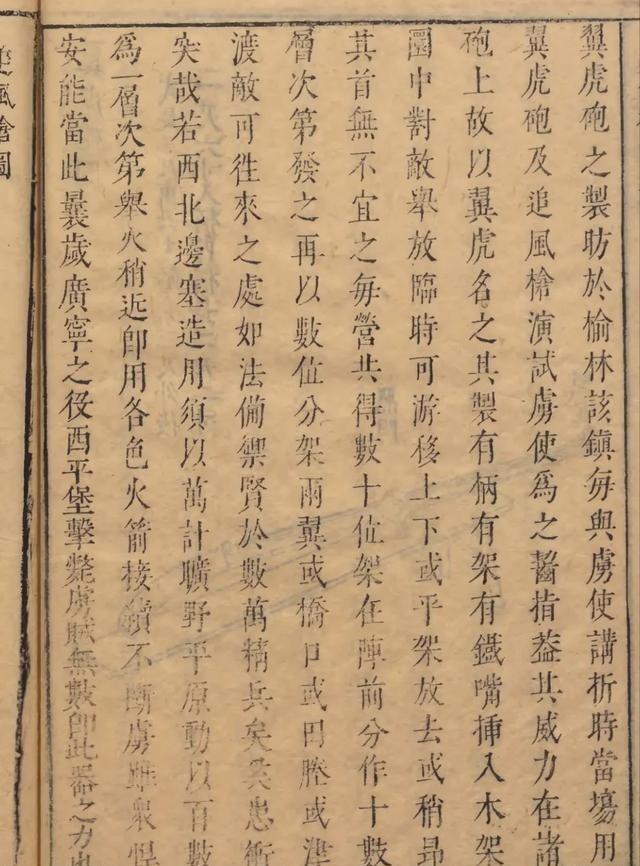 翼虎砲之製昉於榆林該鎮毎與虜使講折時當塲用
翼虎砲及追風槍演試虜使爲之齰指葢其威力在諸
砲上故以翼虎名之其製有柄有架有鐵嘴揷入木架
圈中對敵舉放臨時可游移上下或平架放去或稍昻
其首無不宜之毎營共得數十位架在陣前分作十數
層次第發之再以數位分架兩翼或橋口或田塍或津
渡敵可徃來之處如法備禦賢於數萬精兵矣奚患衝
突哉若西北邊塞造用須以萬計曠野平原動以百數
為一層次第舉火稍近卽用各色火箭接續不斷虜雖衆悍
安能當此曩歲廣寧之役西平堡擊斃虜賊無數卽此器之力也
追風槍圖